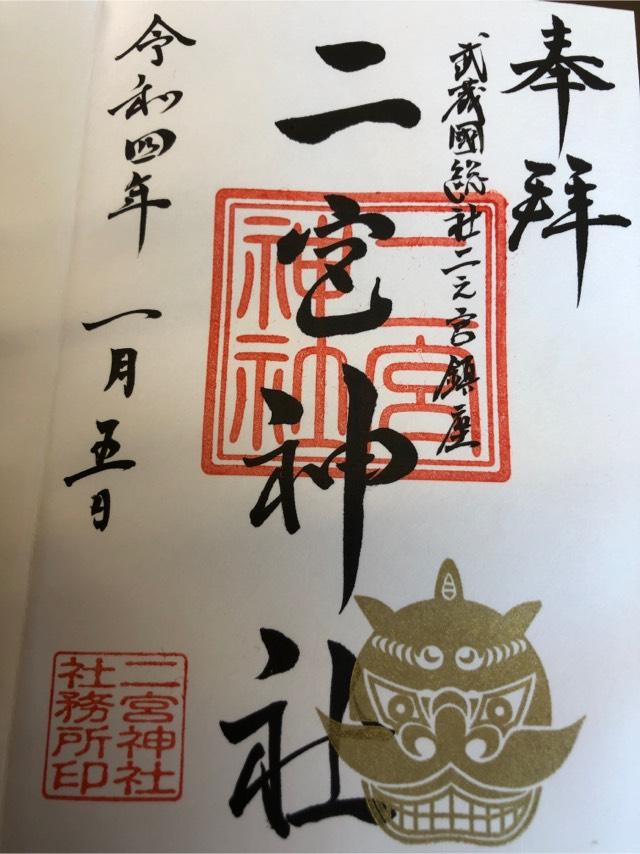 奉拝
武蔵國総社二之宮鎮座
二宮神社
二宮神社
令和四年 一月五日
二宮神社
社務所印